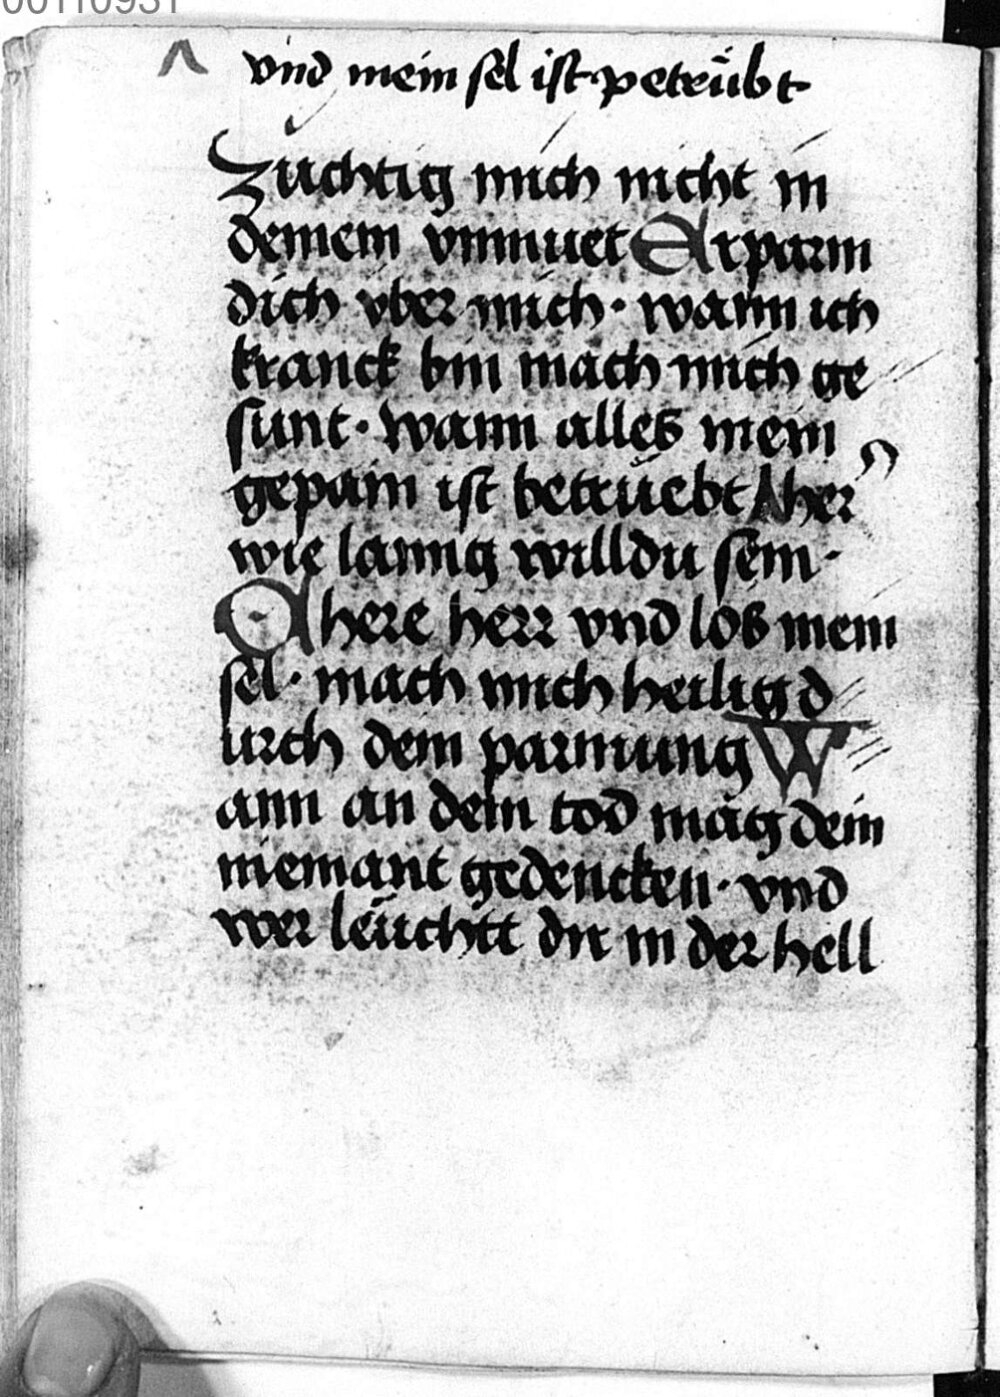 00110931
vnd mein sel ist petrübt
Zuchtig mich nicht in
deinem vnmuet Erparm
dich vber mich · wann ich
kranck bin mach mich ge
sunt · wann alles mein
gepain ist betruebt her
wie lanng willdu sein ·
Ahere herr vnd los mein
sel · mach mich heilig d
urch dein parmung W
ann an dein tod mag dein
niemant gedencken · vnd
wer leuchtt dir in der hell